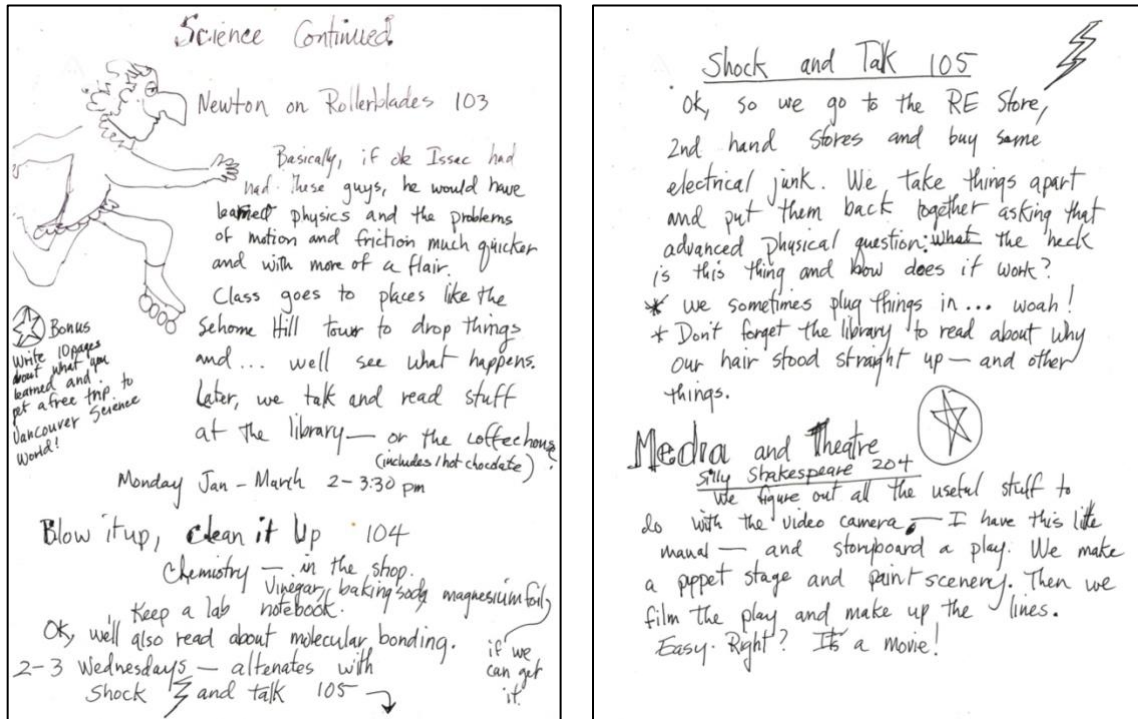 Science Continued.
Newton on Rollerblades 103
Basically, if ole Issac had
had these guys, he would have
learned physics and the problems
of motion and friction much quicker
and with more of a flair.
Class goes to places like the
Sehome Hill tower to drop things
and... well see what happens.
Later, we talk and read stuff
at the library — or the coffeehouse
(includes 1 hot chocolate)!
Bonus
Write 10 pages
about what you
learned and
get a free trip to
Vancouver Science
World!
Monday Jan - March 2-3:30 pm
Blow it up, clean it Up 104
Chemistry — in the shop.
Vinegar, baking soda, magnesium foil,
Keep a lab notebook.
if we
can get
it.
Ok, we'll also read about molecular bonding.
2-3 Wednesdays — altenates with
Shock and talk 105
Shock and Talk 105
Ok, so we go to the RE Store,
2nd hand stores and buy some
electrical junk. We take things apart
and put them back together asking that
advanced physical question: what the heck
is this thing and how does it work?
* we sometimes plug things in... woah!
* Don't forget the library to read about why
our hair stood straight up — and other
things.
Media and Theatre
Silly Shakespeare 204
We figure out all the useful stuff to
do with the video camera — I have this little
manual — and storyboard a play. We make
a puppet stage and paint scenery. Then we
film the play and make up the lines.
Easy. Right? It's a movie!